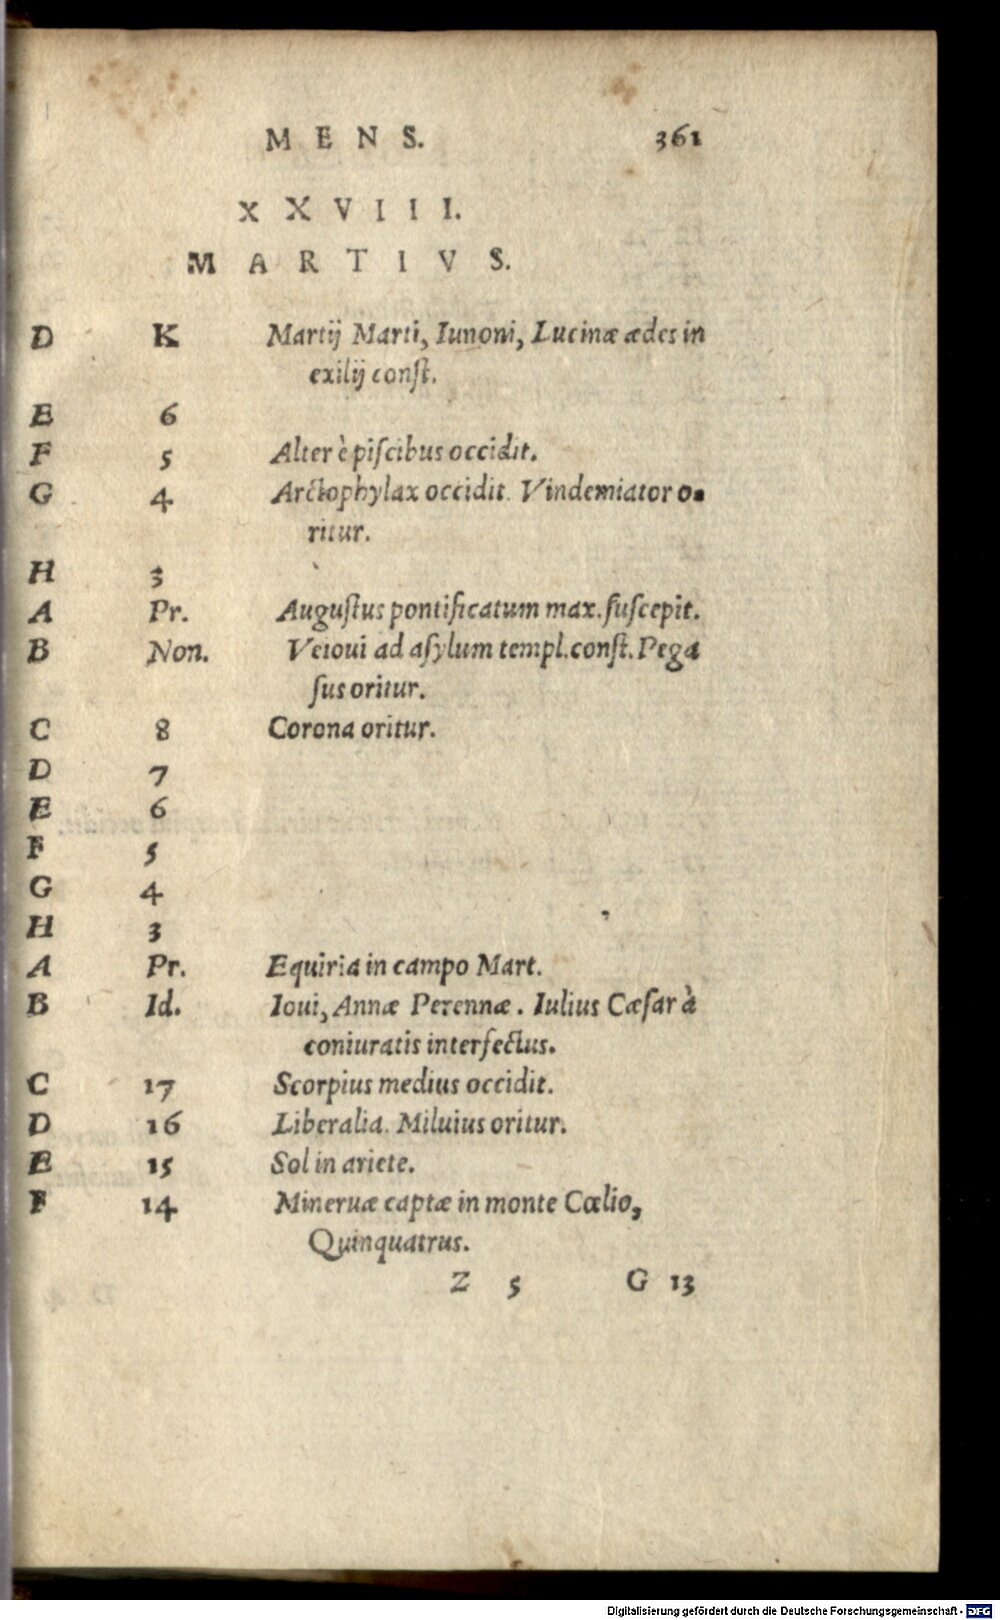 MENS. 361
XXVIII.
MARTIVS.
D K Martij Marti, Iunoni, Lucinæ ædes in
exilij const.
E 6
F 5 Alter è piscibus occidit.
G 4 Arctophylax occidit. Vindemiator o-
ritur.
H 3
A Pr. Augustus pontificatum max. suscepit.
B Non. Veioui ad asylum templ. const. Pega
sus oritur.
C 8 Corona oritur.
D 7
E 6
F 5
G 4
H 3
A Pr. Equiria in campo Mart.
B Id. Ioui, Annæ Perennæ. Iulius Cæsar à
coniuratis interfectus.
C 17 Scorpius medius occidit.
D 16 Liberalia. Miluius oritur.
E 15 Sol in ariete.
F 14 Mineruæ captæ in monte Cœlio,
Quinquatrus.
Z 5 G 13
Digitalisierung gefördert durch die Deutsche Forschungsgemeinschaft - DFG